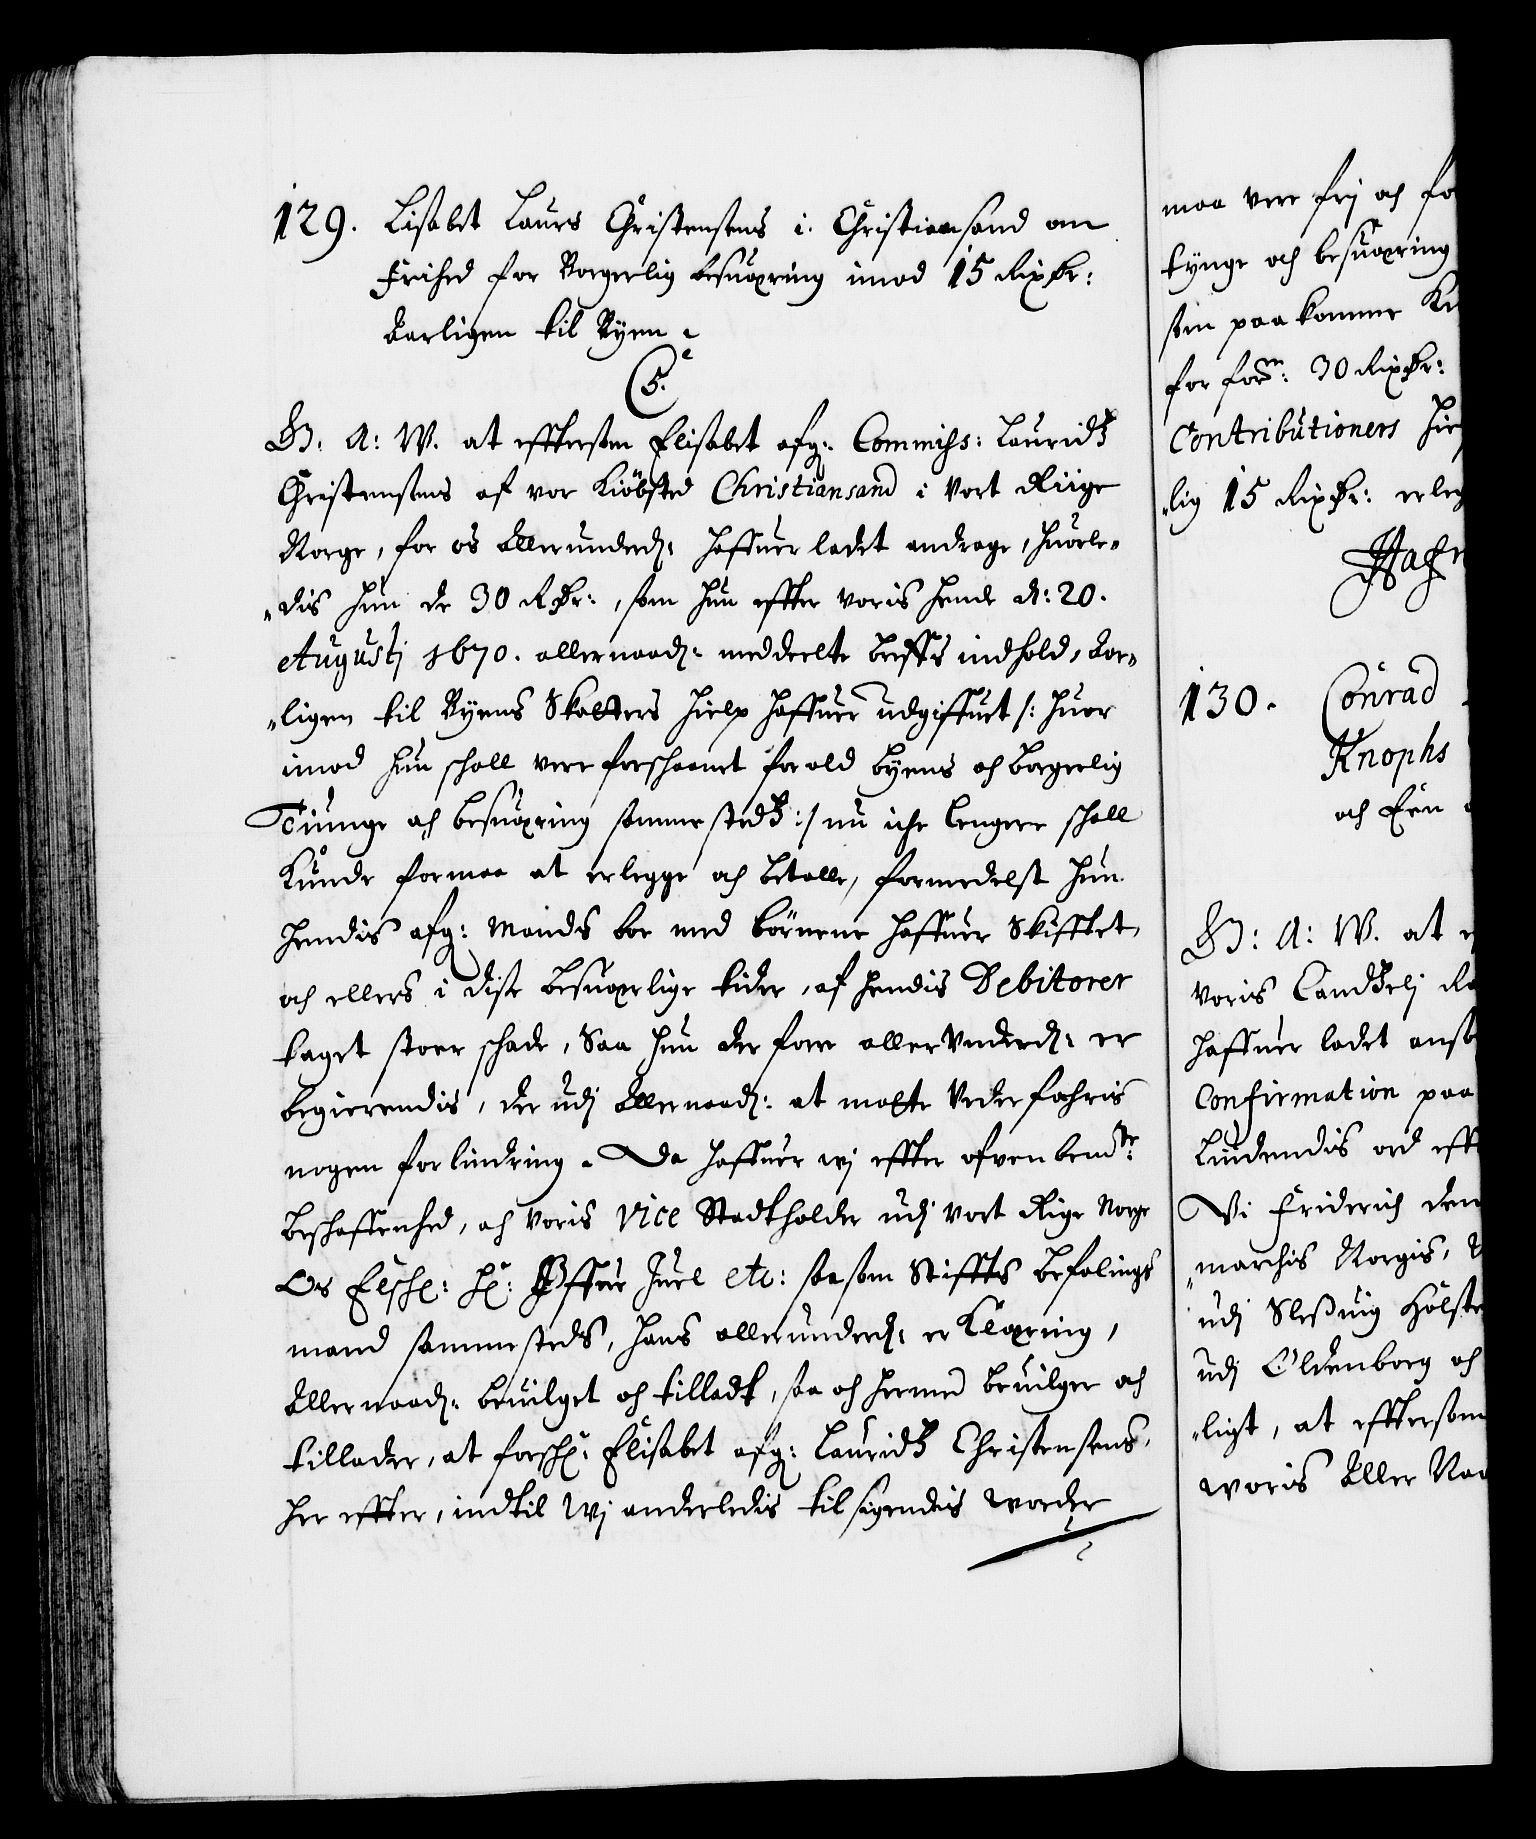 129. Lisabet Laurs Christensens i Christiansand om
Frihed for Borgerlig besuæring imod 15 Rixdr:
Aarligen til Byen
C5.
G. A: W. at effttersom Elisabet afg: Commiss: Lauridtz
Christensens af vor Kiöbsted Christiansand i Vort Riige
Norge, for os Allerunderd: haffuer ladet andrage, huorle-
dis hun de 30 Rdr:, som hun effter voris hende d: 20.
Augustj 1670. allernaad: meddeelte breffs indhold, Aar-
ligen til Byens Skatters hielp haffuer udgiffuet /: huor
imod hun skall vere forskaanet for ald byens och borgerlig
Tiunge och besuæring sammestedtz :/ nu iche lengere skall
Kunde formaa at erlegge och betalle, formedelst hun
hendis afg: Mands boe med börnene haffuer Skifftet,
och ellers i disse besuærlige tider, af hendis Debitorer
taget stoer schade, Saa hun der fore allerVnderd: er
begierendis, der udj Allernaad: at motte Vederfahris
nogen forlindring. Da haffuer wj effter ofvenbemte:
beschaffenhed, och voris Vice Stadtholder udj vort Rige Norge
Os Elskel: Hr: Offue Juel etc: saasom Stiffts befalings
mand sammesteds, hans allerunderd: erKlæring,
Allernaad: beuilget och tilladt, saa och hermed beuilger och
tillader, at forschr: Elisabet afg: Lauridtz Christensens,
her effter, indtil Wj anderledis tilsigendis worder
maa vere frj och fo
tynge och besuæring
sten paakomme Ku
for forne: 30 Rixdr:
Contributioners hie
lig 15 Rixdr: erleg
Haffn
130. Conrad
Knophs
och Een
G: A: W. at e
voris Cand
haffuer ladet ans
Confirmation paa
Liudendis ord efft
Vi Friderich den
marchis Norgis,
udj Slesuig Holste
udj Oldenborg och
ligt, at efftersom
woris Aller Naa